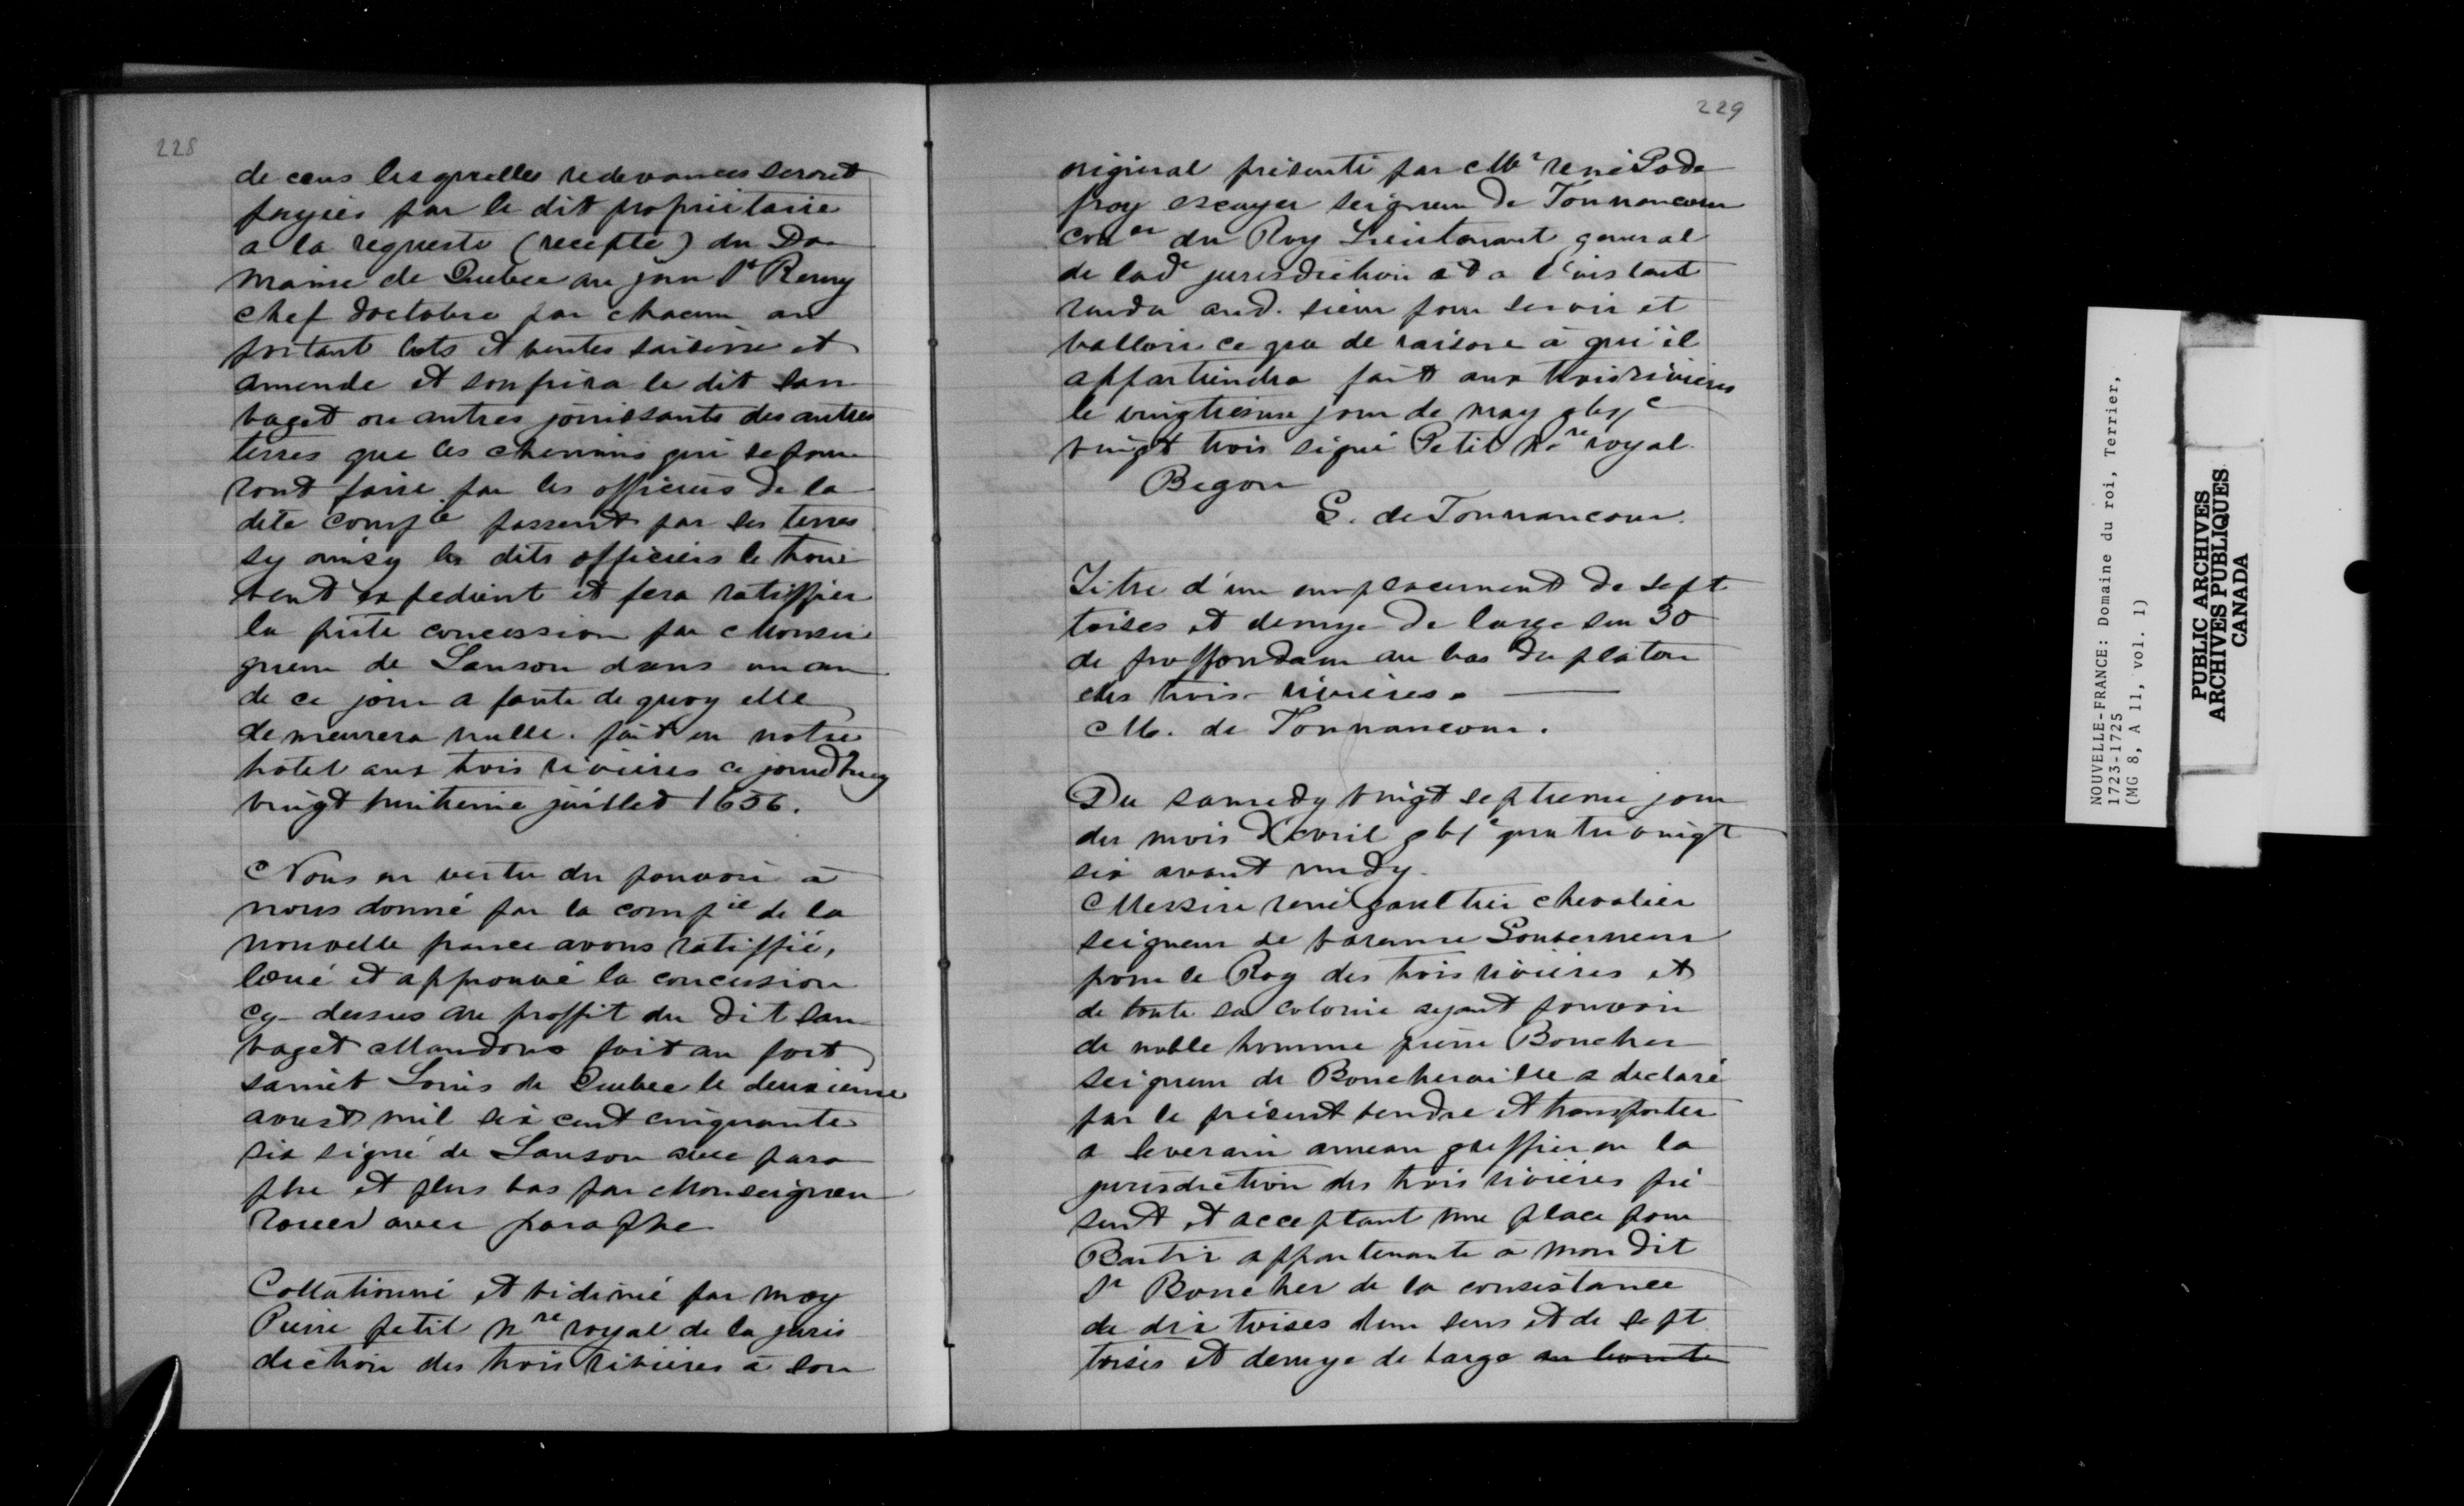 228
de cens lesquelles redevances seront
payées par le dit propriétaire
a la requeste (recepte) du Do-
maine de Quebec au jour St Remy
chef doctobre par chacun an
portant lots et ventes saisinne et
amende et soufrira le dit sau
vaget ou autres jouissants des autres
terres que les chemins qui se pour
ront faire par les officiers de la
dite compie passent par ses terres
sy ainsy les dits officiers le trou
vent expedient et fera ratiffier
la pnte concession par Monsei
gneur de Lauson dans un an
de ce jour a faute de quoy elle
demeurera nulle. fait en notre
hotel aux trois rivières ce jourdhuy
vingt huitieme juillet 1656.
Nous en vertu du pouvoir à
nous donné par la compie de la
nouvelle france avons ratiffié,
loué et approuvé la concession
cy-dessus au proffit du dit sau
vaget Mandons fait au fort
saint Louis de Quebec le deuxieme
aoust mil six cent cinquante
six signé de Lauson avec para
phe et plus bas par Monseigneur
Rouer avec paraphe
Collationné et vidimé par moy
Pierre petit nre royal de la juris
diction des trois rivieres à son
229
original présenté par Mr rené Gode
froy escuyer seigneur de Tonnancour
coner du Roy Lieutenant general
de lade jurisdiction et a l'instant
rendu aud. sieur pour servir et
valloir ce que de raison à qui il
appartiendra fait aux trois rivieres
le vingtiesme jour de may gbijc
vingt trois signé Petit nre royal
Begon
G. de Tonnancour.
Titre d'un emplacement de sept
toises et demye de large sur 30
de proffondeur au bas du platon
des trois-rivières.
M. de Tonnancour.
Du samedy vingt septieme jour
du mois d'avril gbjc quatre vingt
six avant midy.
Messire rené gaultier chevalier
seigneur de varenne Gouverneur
pour le Roy des trois rivieres et
de toute sa colonie ayant pouvoir
de noble homme pierre Boucher
seigneur de Boucherville a declaré
par le présent vendre et transporter
a severain ameau greffier en la
jurisdiction des trois rivieres pré
sent et acceptant une place pour
Bastir appartenante à mon dit
Sr Boucher de la consistance
de dix toises dun sens et de sept
toises et demye de large
NOUVELLE-FRANCE: Domaine du roi, Terrier,
1723-1725
(MG 8, A 11, vol. 1)
PUBLIC ARCHIVES
ARCHIVES PUBLIQUES
CANADA